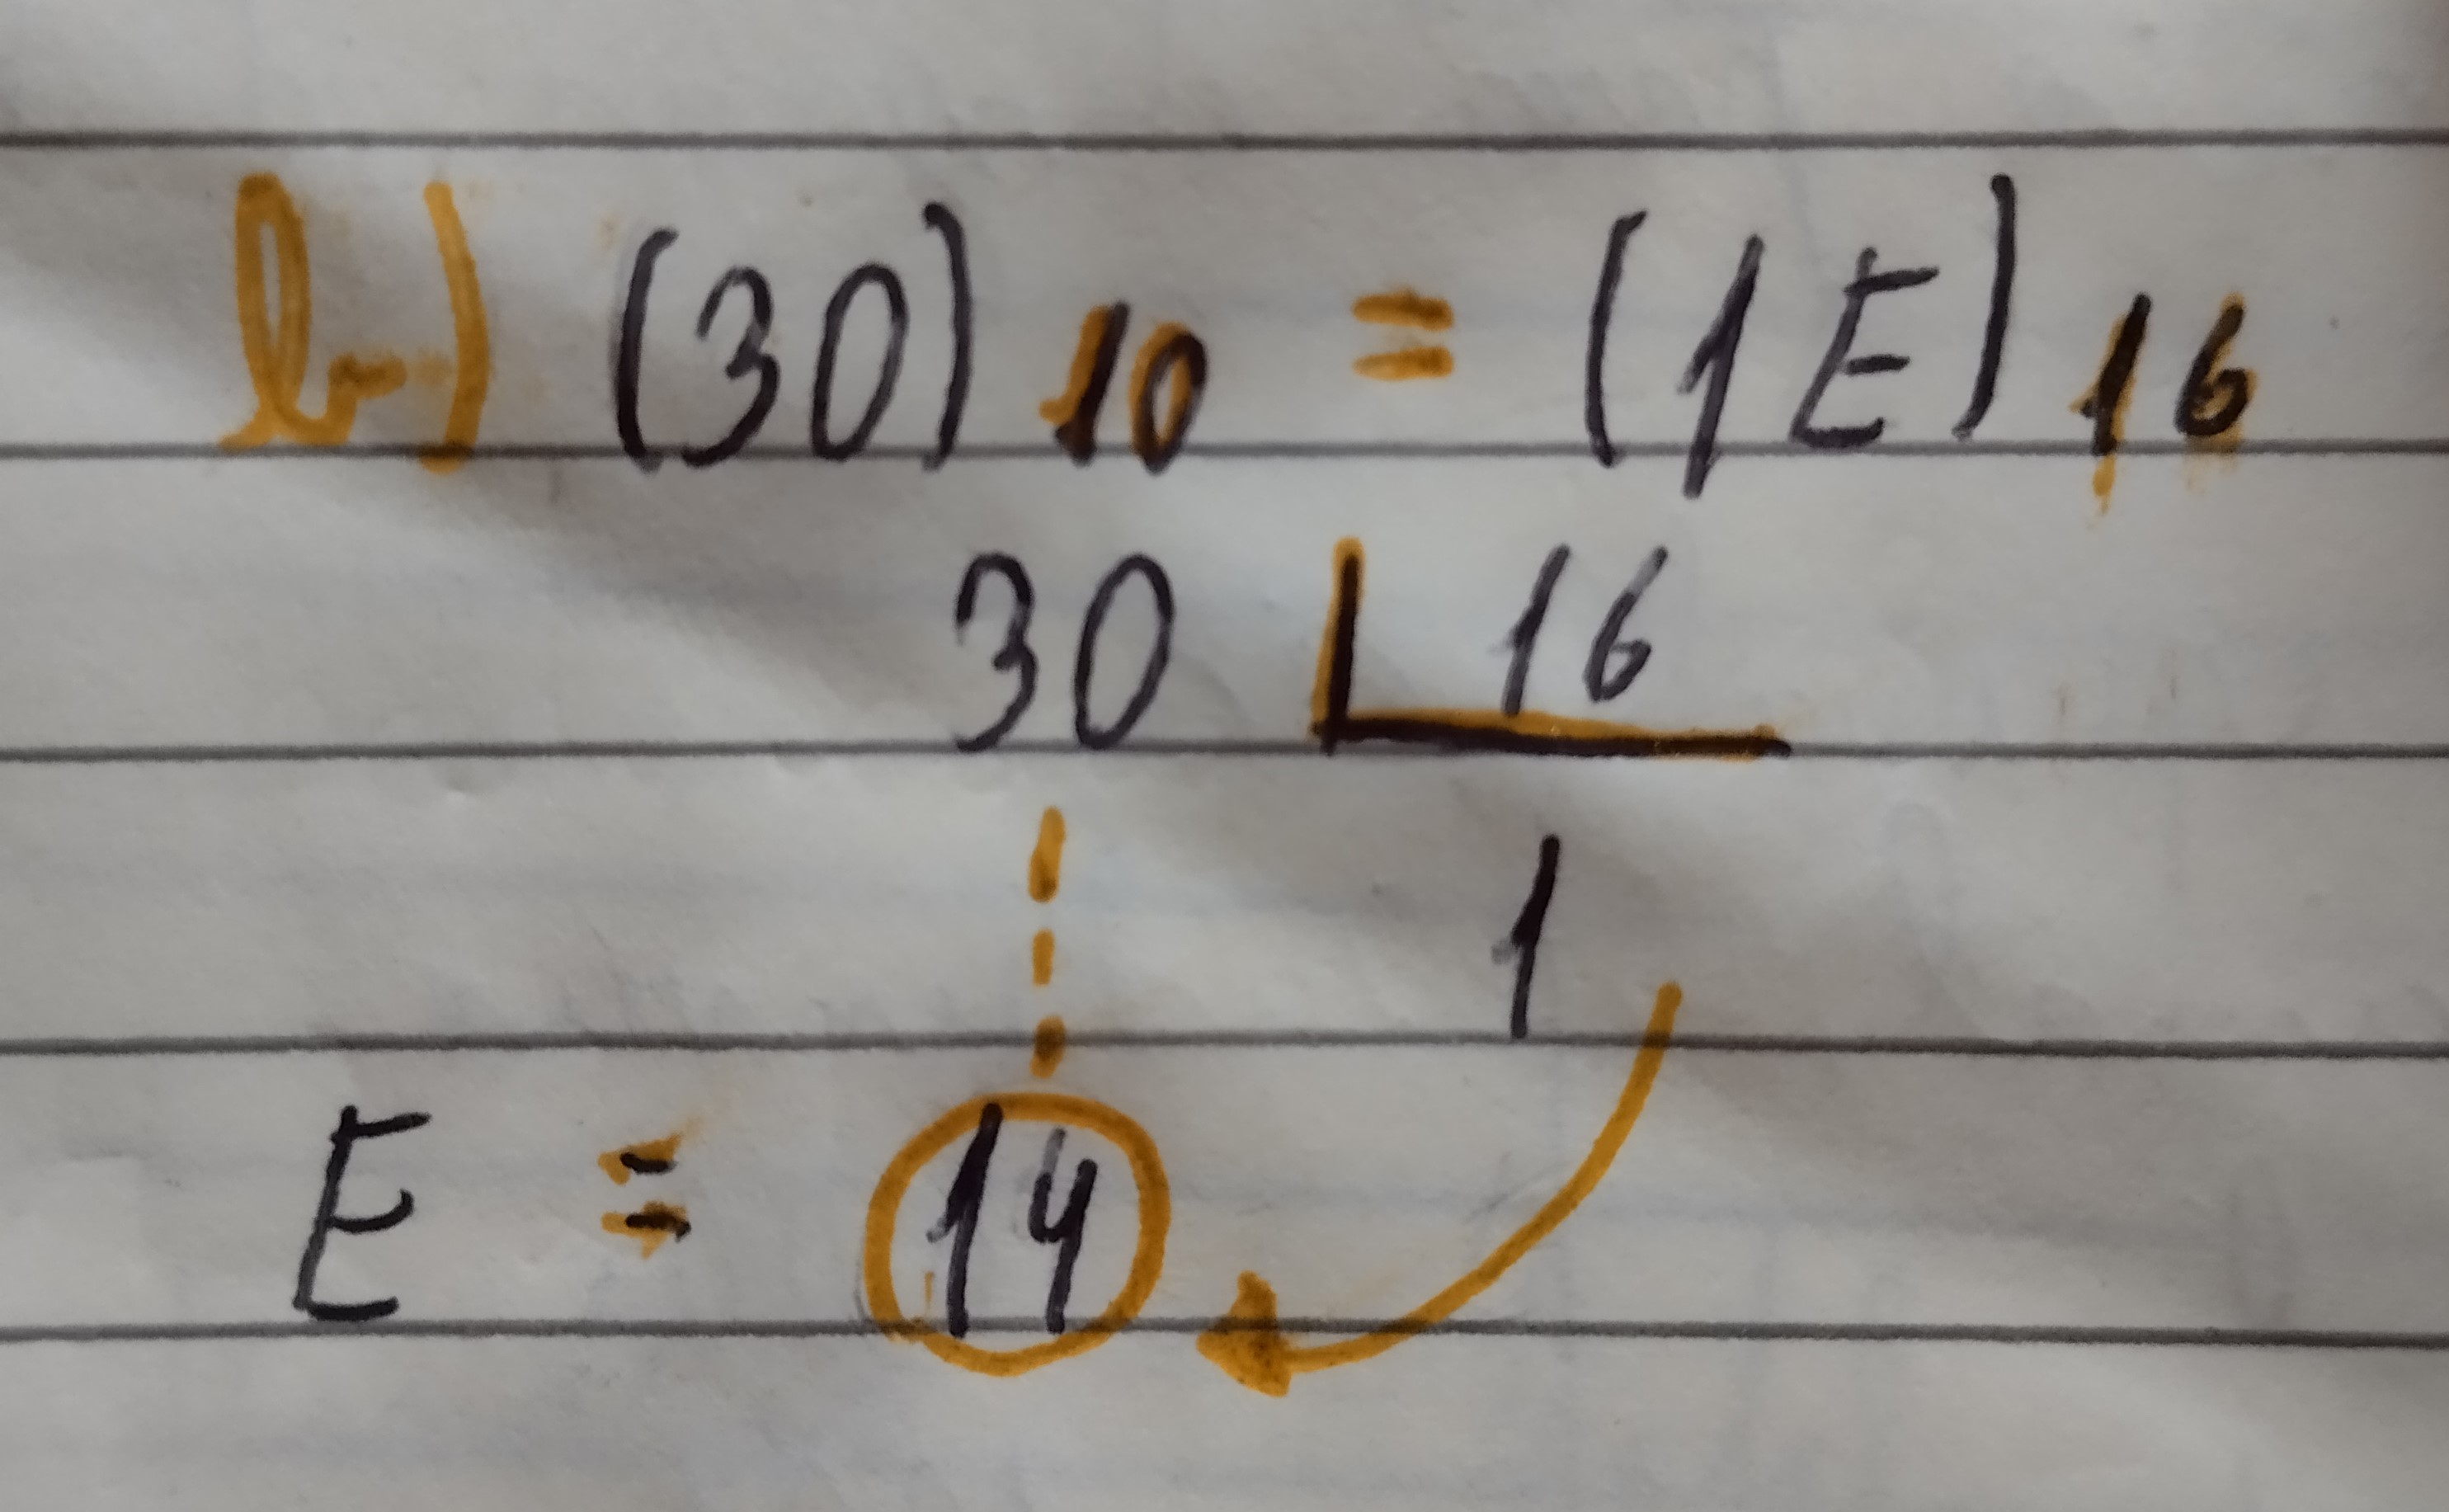 b) (30)10 = (1E)16
30 16
1
E = 14